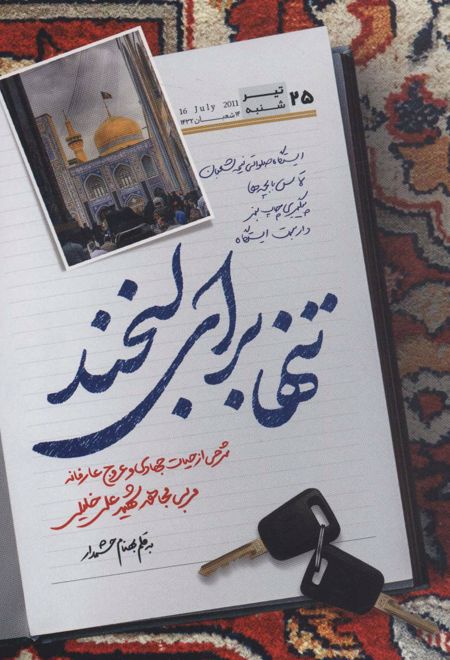 ۲۵ تیر
شنبه
16 July 2011
۱۴ شعبان ۱۴۳۲
ایستگاه صلواتی نیمه شعبان
تماس با بچه‌ها
پیگیری چاپ بنر
داربست ایستگاه
تنها برای لبخند
شرحی از حیات جهادی و عروج عارفانه
مربی مجاهد شهید علی خلیلی
به قلم بهنام خشمدار